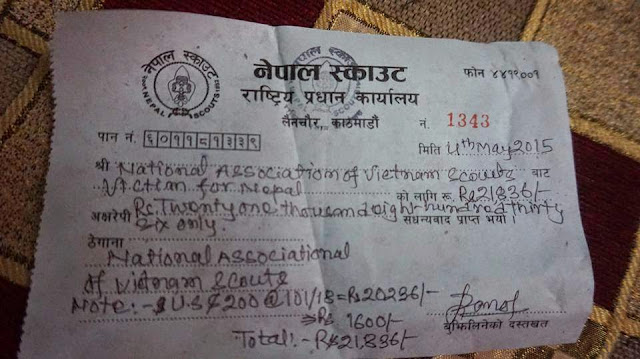 नेपाल स्काउट
NEPAL SCOUTS
नेपाल स्काउट
फोन ४४१९००१
राष्ट्रिय प्रधान कार्यालय
लैनचौर, काठमाडौं
नं. 1343
पान नं. ६०११८१३३९
मिति 4th May 2015
श्री National Association of Vietnam Scouts बाट
Victeam for Nepal को लागि रू. Rs 21836/-
अक्षरेपी Rs. Twenty one thousand eight hundred thirty
six only. सधन्यवाद प्राप्त भयो ।
ठेगाना
National Associational
of Vietnam Scouts
Note:- $ US $ 200 @ 101/18 = Rs 20236/-
Rs 1600/-
Total:- Rs 21836/-
बुझिलिनेको दस्तखत